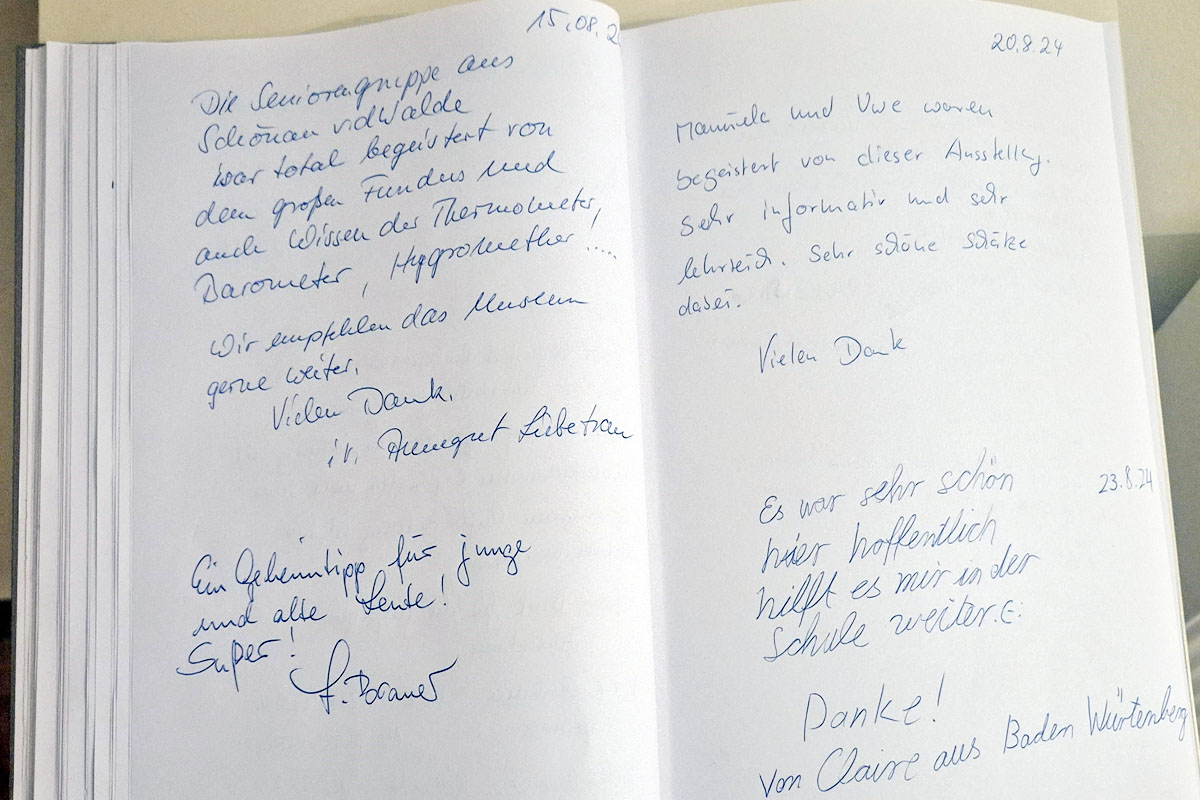 15.08.2
Die Seniorengruppe aus
Schönau vdWalde
war total begeistert von
dem großen Fundus und
auch Wissen der Thermometer,
Barometer, Hygromether!....
Wir empfehlen das Museum
gerne weiter.
Vielen Dank.
i.V. Annegret Liebetrau
Ein Geheimtipp für junge
und alte Leute!
Super!
20.8.24
Manuela und Uwe waren
begeistert von dieser Ausstellung.
Sehr informativ und sehr
lehrreich. Sehr schöne Schätze
dabei.
Vielen Dank
23.8.24
Es war sehr schön
hier hoffentlich
hilft es mir in der
Schule weiter.(:
Danke!
Von Claire aus Baden Würtenberg